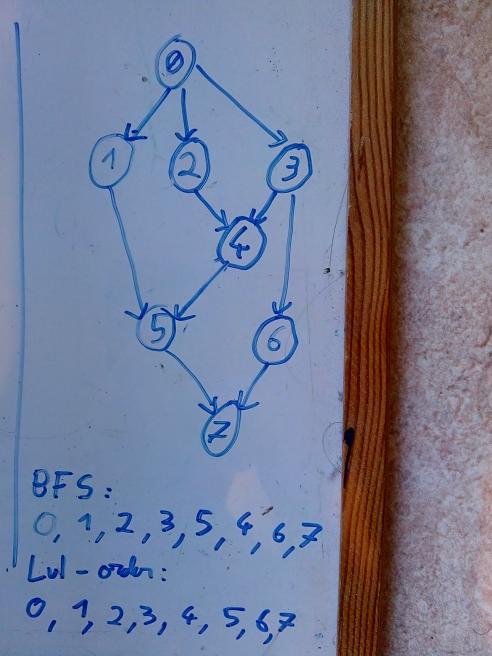 0
1 2 3
4
5 6
7
BFS:
0, 1, 2, 3, 5, 4, 6, 7
Lvl-order:
0, 1, 2, 3, 4, 5, 6, 7